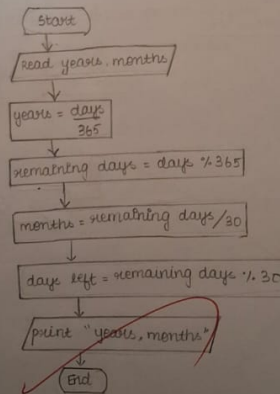 Start
Read years, months
years = days
365
remaining days = days % 365
months = remaining days/30
days left = remaining days % 30
print "years, months"
End